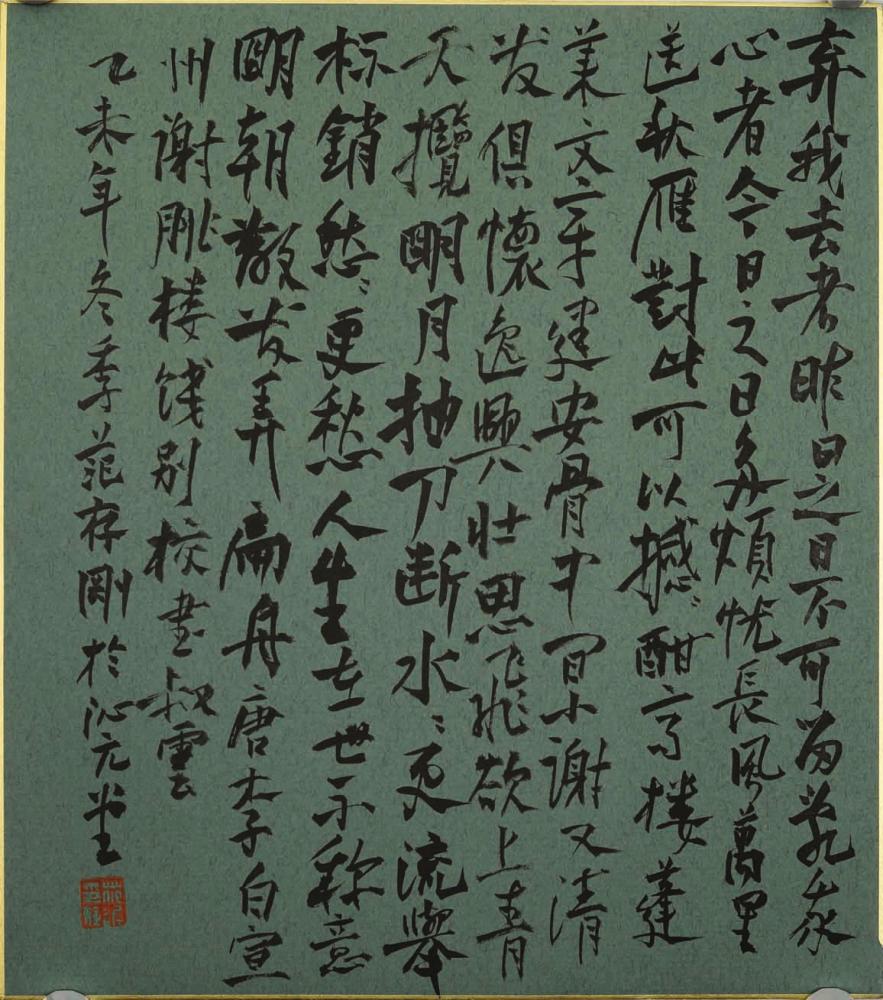 弃我去者昨日之日不可留乱我
心者今日之日多煩忧長風萬里
送秋雁對此可以撼〻酣高楼蓬
莱文章建安骨中间小谢又清
发俱懷逸興壮思飛欲上青
天攬明月抽刀断水〻更流舉
杯銷愁〻更愁人生在世不称意
明朝散发弄扁舟唐李白宣
州谢朓楼饯别校書叔雲
乙未年冬季范存剛於沁元堂